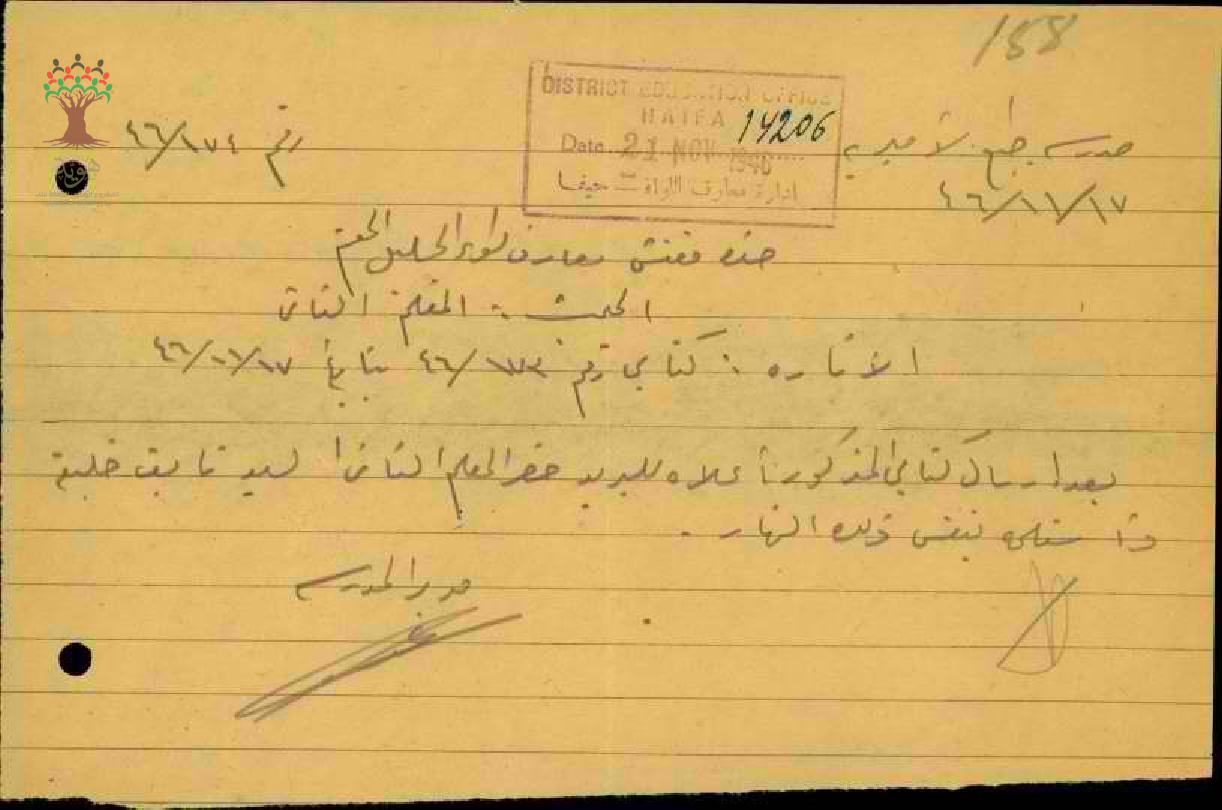 158
مدرسة جبع الأميرية
رقم ٤٦/١٧٤
DISTRICT EDUCATION OFFICE
HAIFA 14206
Date 21 NOV 1946
ادارة معارف اللواء حيفا
٤٦/١١/١٧
حضرة مفتش معارف لواء الجليل المحترم
البحث : المعلم الثاني
الاشارة : كتابي رقم ٤٦/١٧٣ بتاريخ ٤٦/١١/١٧
بعد ارسال كتابي المذكور أعلاه للبريد حضر المعلم الثاني السيد نايف خليفة
واستلم بنفس ذلك النهار .
مدير المدرسة
هوية